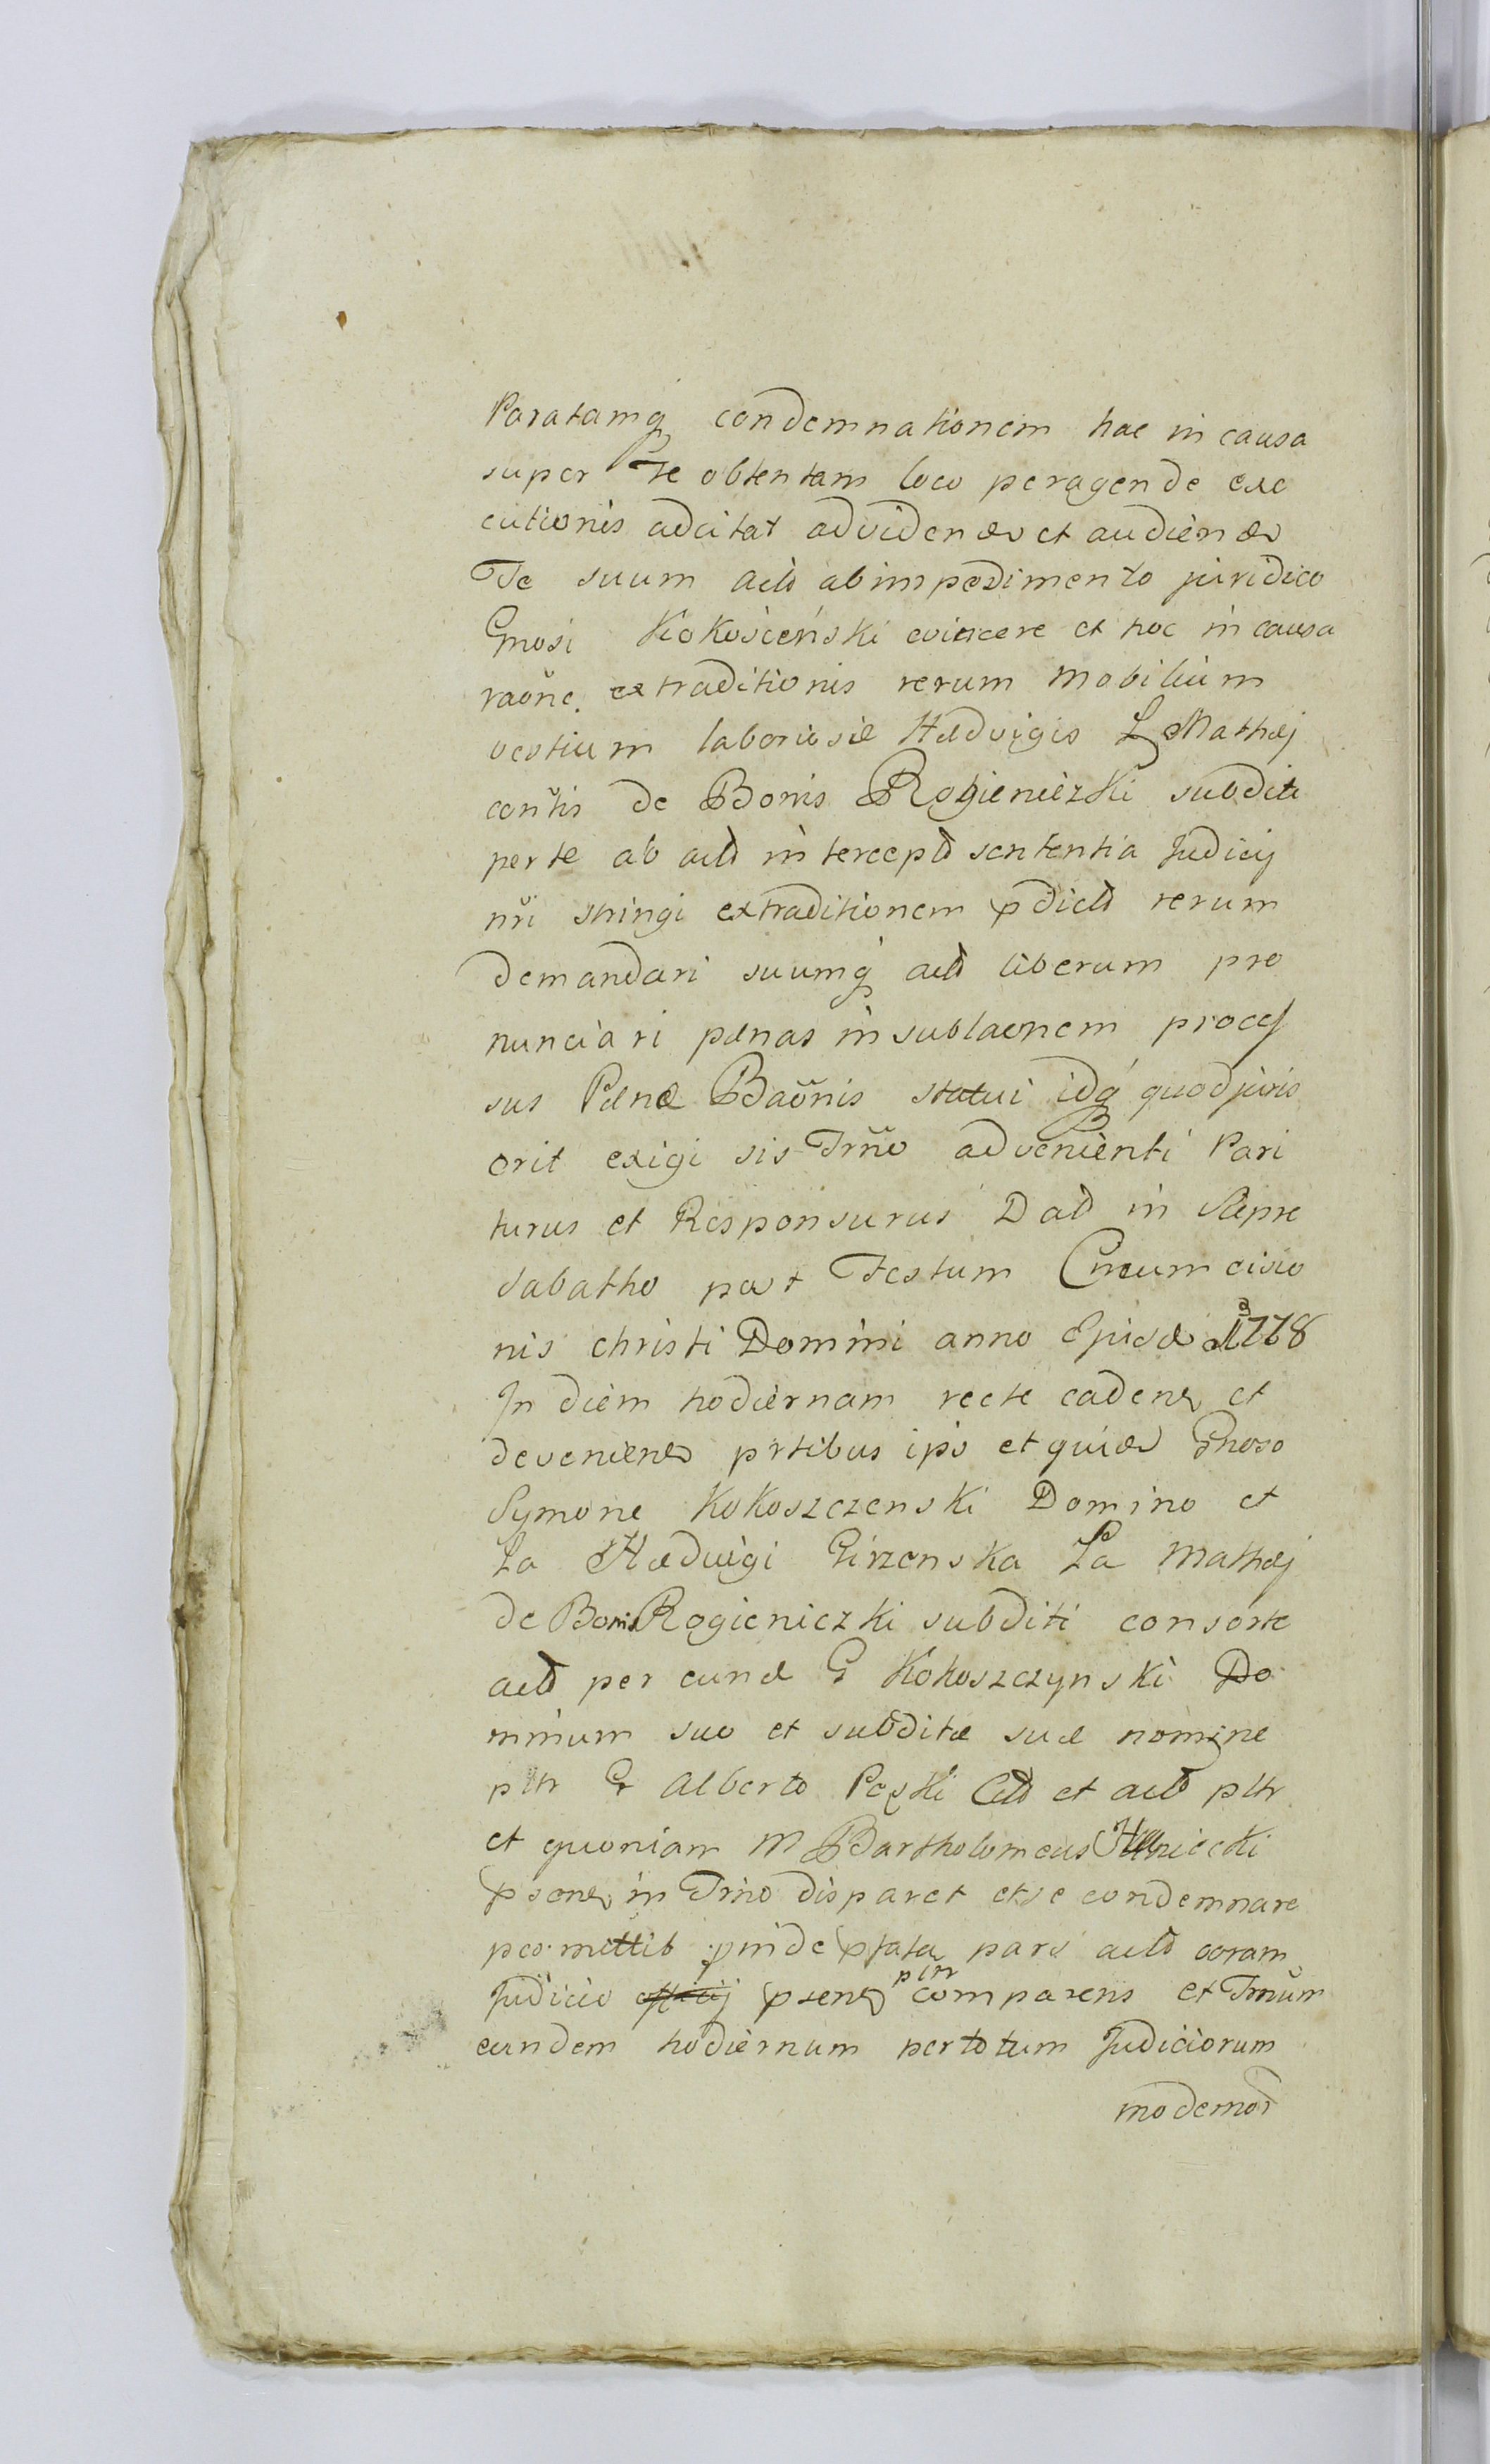 Paratamq condemnationem hac in causa
super Te obtentam loco peragende exe
cutionis adcitat ad videndu et audiendu
Te suum actō ab impedimento juridico
Gnosi Kokościeński evincere et hoc in causa
raoñe. extraditionis rerum mobilium
vestium laboriosæ Hædvigis L Mathæj
contis de Bonis Rogieniczki subditi
per te ab actō interceptō sententia Judicij
nri stringi extraditionem pdictō rerum
demandari suumq actō liberum pro
nunciari pænas in sublaonem proces
sus Pænæ Baõnis statui idq quod juris
erit exigi sis Trño advenienti Pari
turus et Responsurus Datō in
Sabatho post Festum Circumcisio
nis christi Domini anno Ejusd 1778
In diem hodiernam recte caden et
devenien prtibus ipis et quid Gnoso
Symone Kokoszczenski Domino et
La Hædvigi Girzenska La Mathæj
de Bonis Rogieniczki subditi consorte
actō per eund G Kokoszczynski Do
minum suo et subditæ suæ nomine
pltr G Alberto Peski Citō et actō pltr
et quoniam M Bartholomeus
psens in Trño disparet et se condemnare
permittit proinde pfata pars actō coram
Judicio officij psens pltr comparens et Trnum
eundem hodiernum per totum Judiciorum
modernor